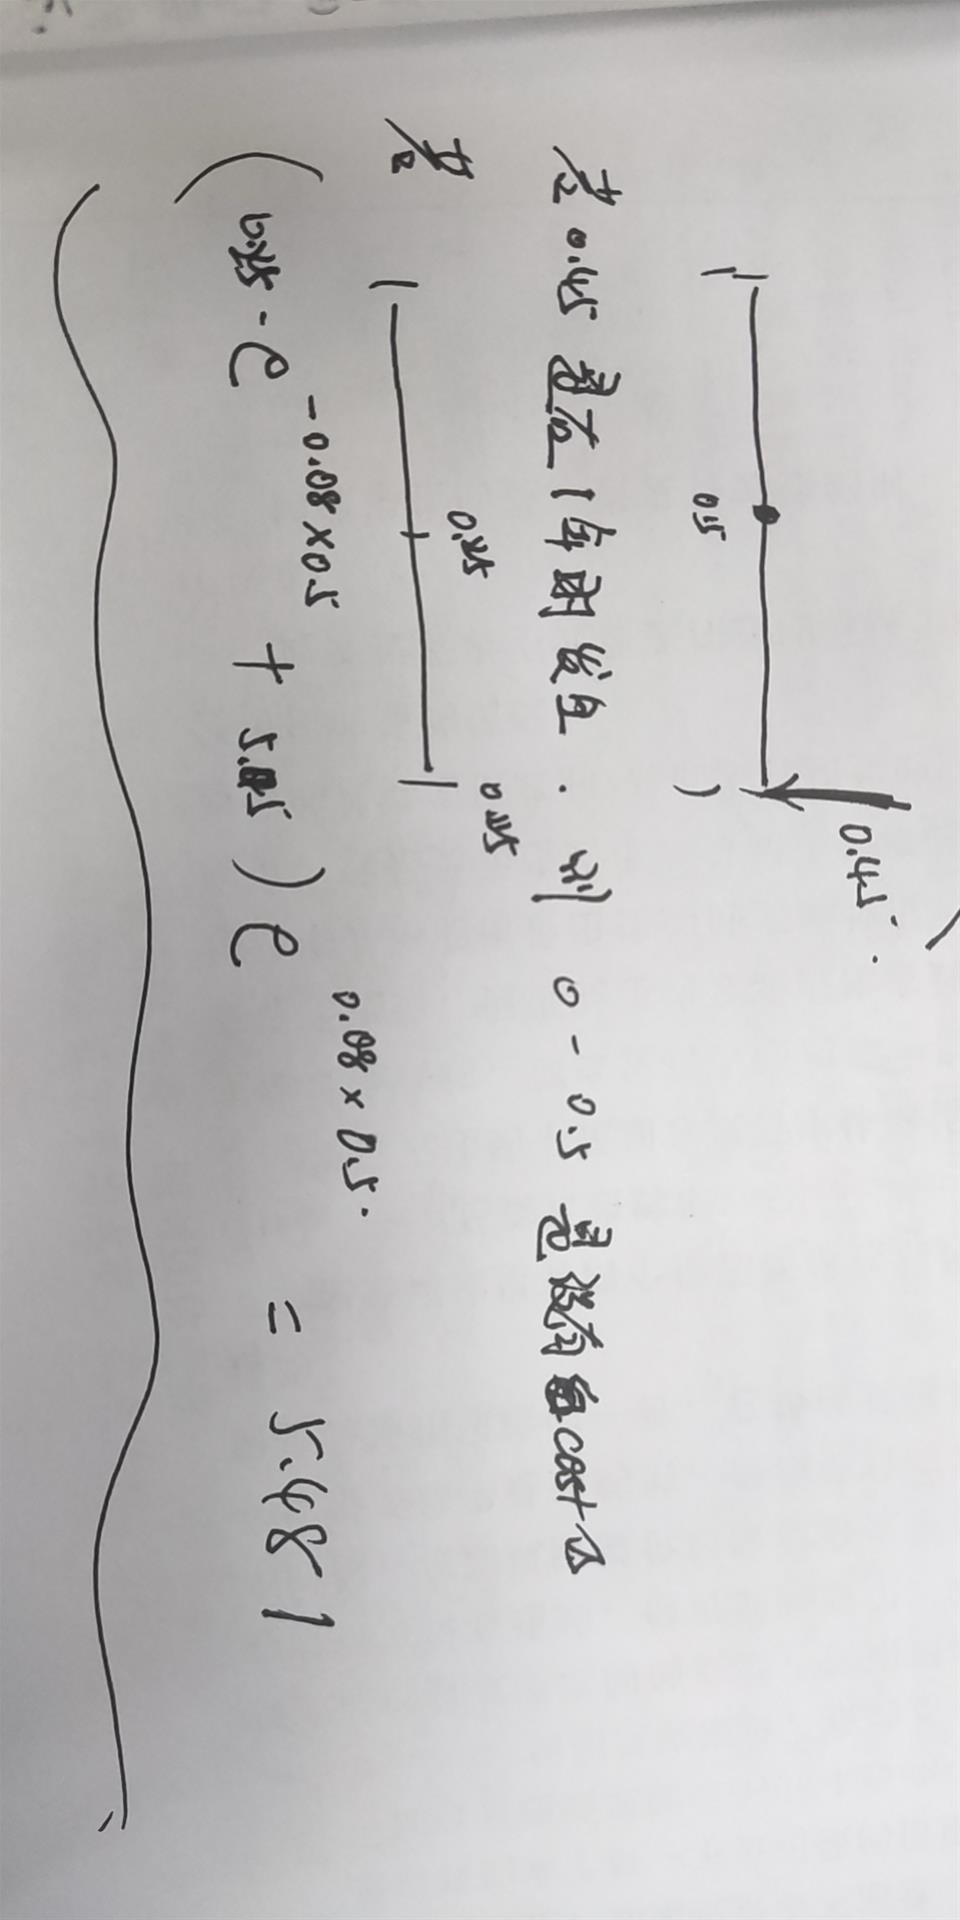 0.45
0.5
若 0.45 是在 1 年期发生. 则 0 - 0.5 是没有 cost 的
若
0.225
0.225
(0.225 · e^-0.08×0.5 + 5.05) e^0.08×0.5. = 5.481